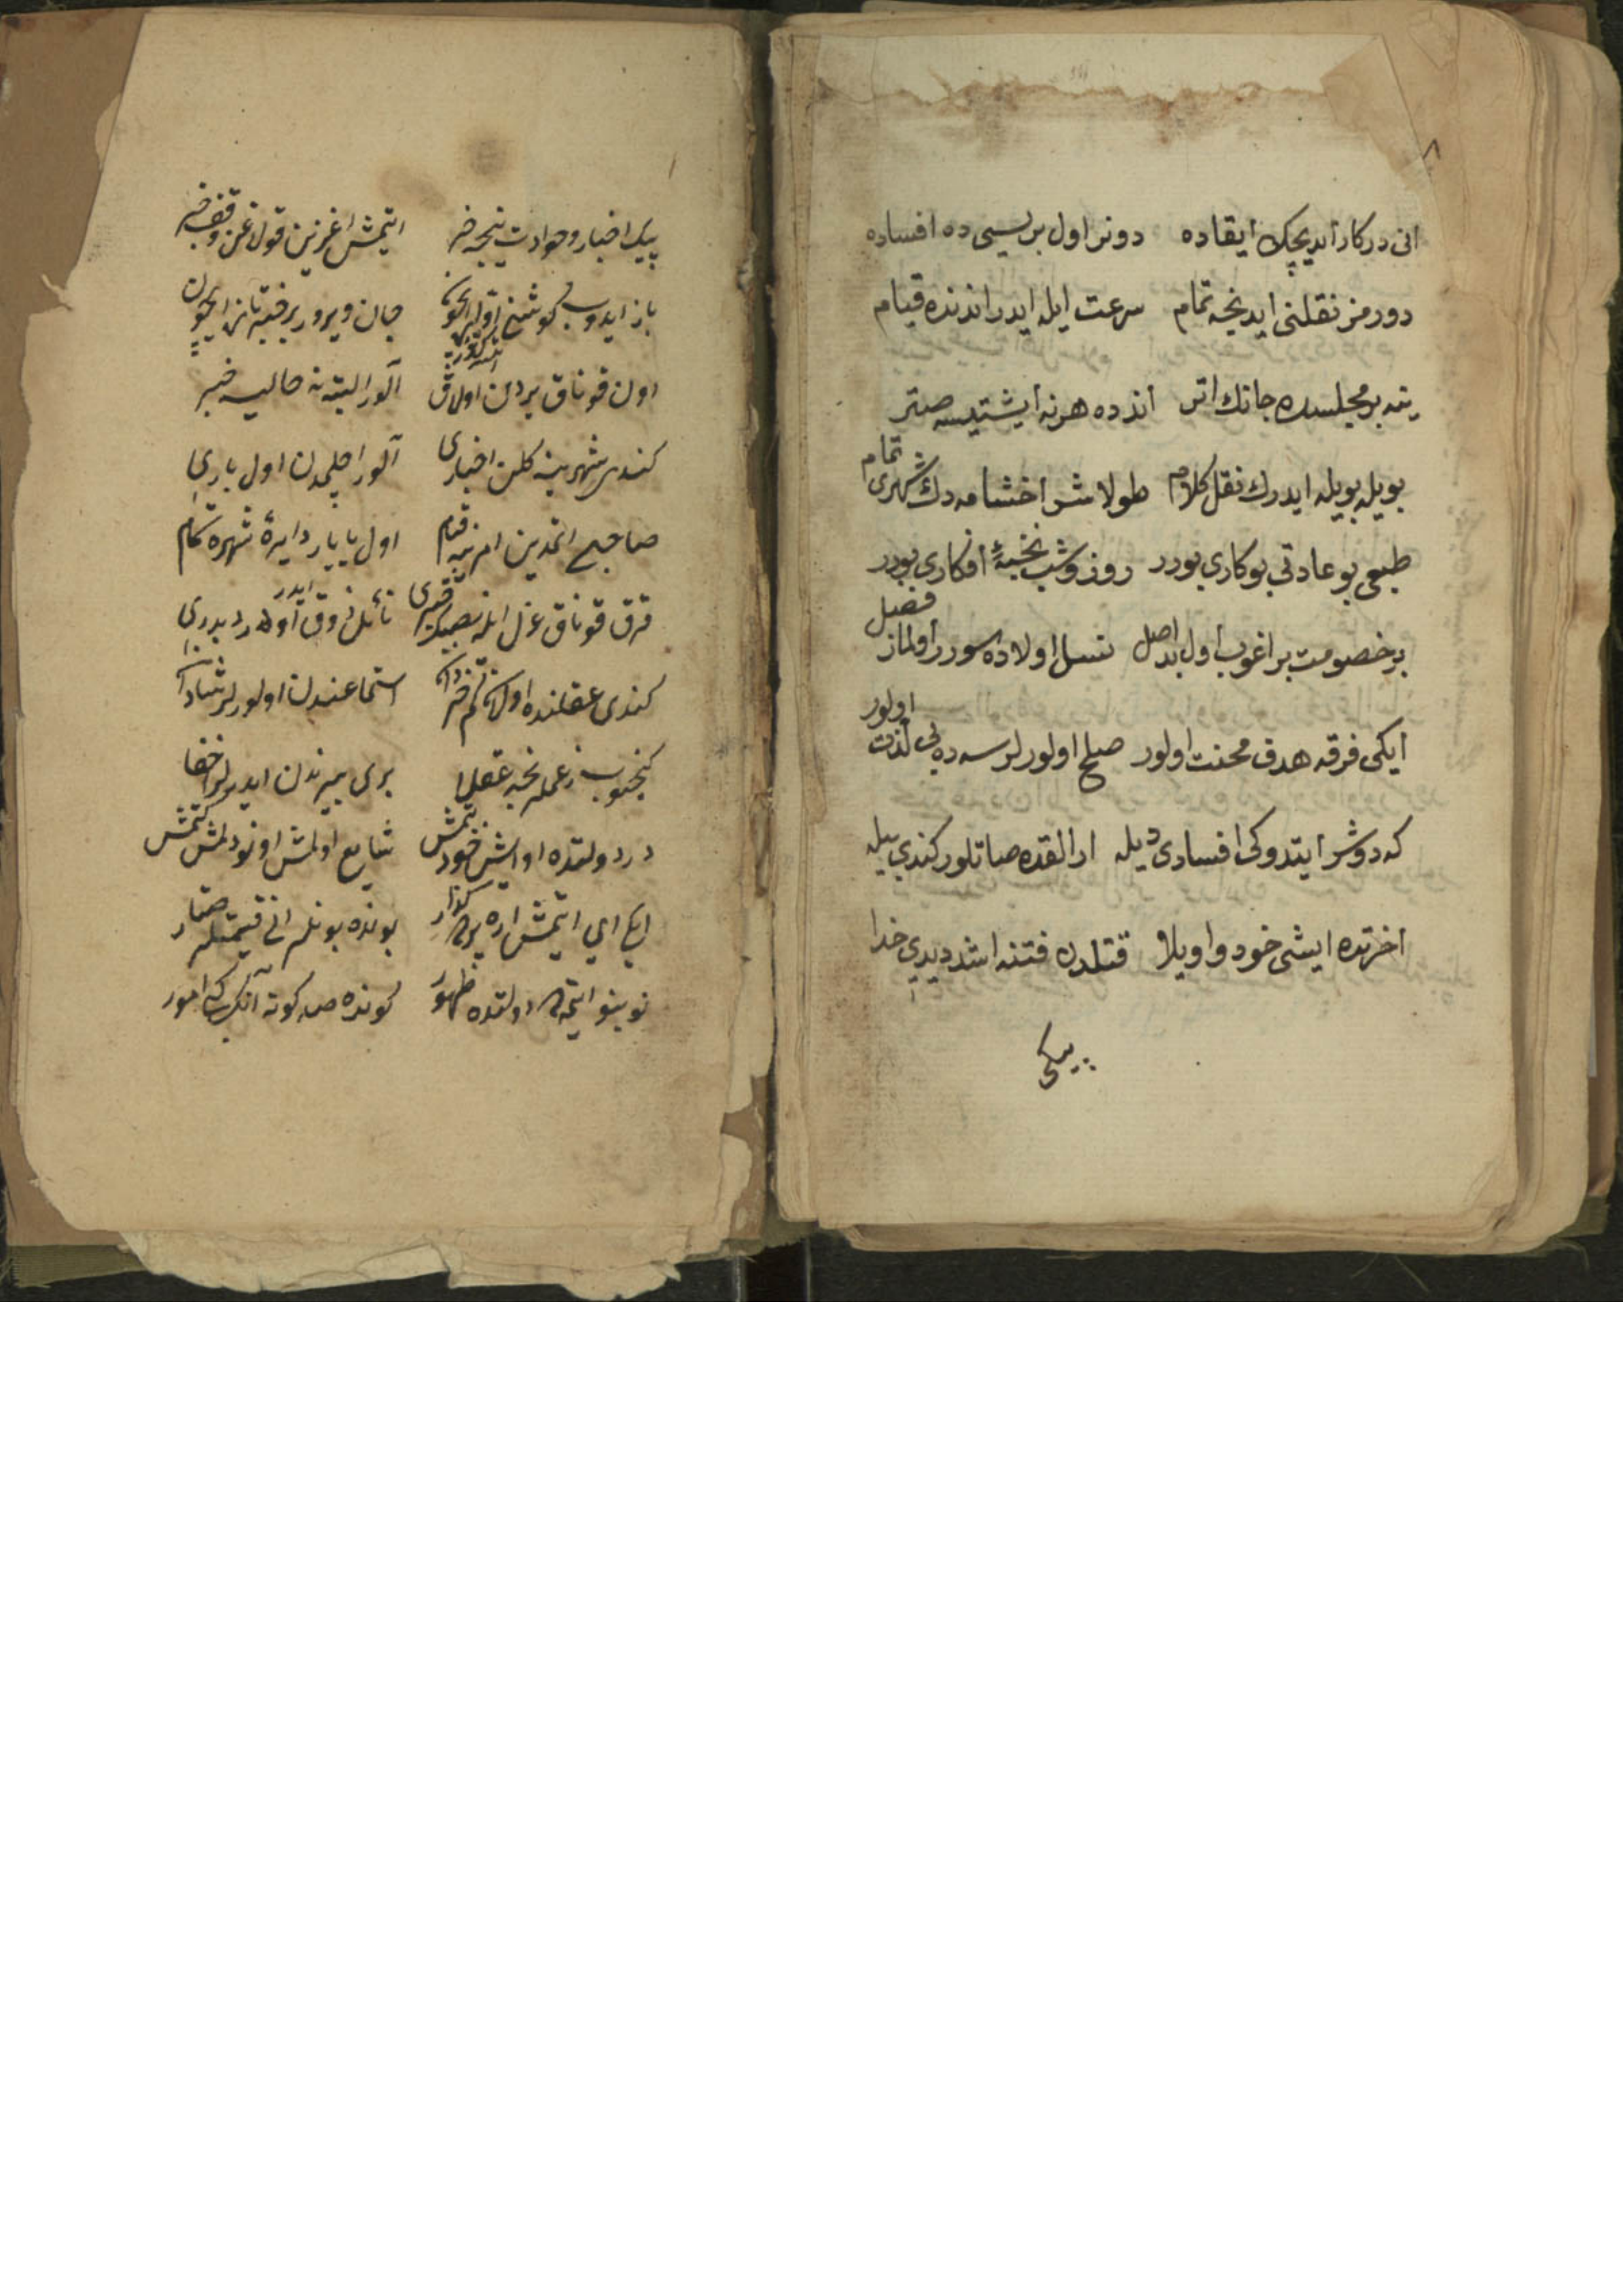 ٨
انی درکار ایدیجك ایقاده دونر اول بریسی ده افساده
دورمز نقلنی ایدنجه تمام سرعت ایله ایدر اندنده قیام
ینه بر مجلسده جانك اتر انده هر نه ایشتیسه صتر
بویله بویله ایدرك نقل کلام طولاشر اخشامه دك شهری تمام
طبعی بو عادتی بو کاری بودر روز و شب نخبهٔ افکاری بودر
بر خصومت براغوب اول بد اصل نسل اولاده سورر اولماز فصل
ایکی فرقه هدف محنت اولور صلح اولورلرسه ده بی لذت اولور
که دوشر ایتدوکی افسادی دیله ارالقده صاتلور کندی بیله
اخرتده ایشی خود واویلا قتلدن فتنه اشد دیدی خدا
پیکی
پیك اخبار و حوادث نیجه خر ایتمش اغزین قولاغن وقف خبر
باز ایدوب کوشنی جان ویرور بر خبر تازه ایچون
اون قوناق یردن اولاق آلور البته نه حالیسه خبر
کندی شهرینه کلن اخباری آلور اچلمدن اول باری
صباحی اتمدین امرینه قیام اول یاپار دایرهٔ شهره تمام
قرق قوناق عزل نائل ذوق ایدر
کندی عقلنده اولان استماعندن اولورلر شاد
بری بیرندن ایدرلر اخفا
در دولتده او ایش خود بتمش شایع اولمش اونودلمش کتمش
ایکی ای ایتمش اره یرده کذار بونده بونلر انی قیمتله صتار
نو بنو ایتمده دولتده ظهور کونده صد کونه آنك کبی امور